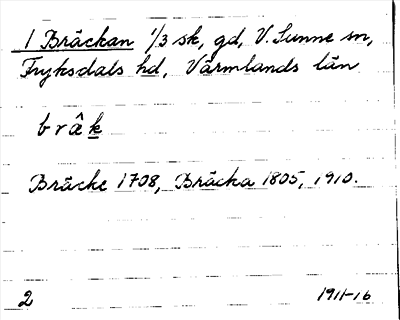 1 Bräckan 1/3 sk, gd, V. Sunne sn,
Fryksdals hd, Värmlands län
bræ̂k
Bräcke 1708, Bräcka 1805, 1910.
2 1911-16